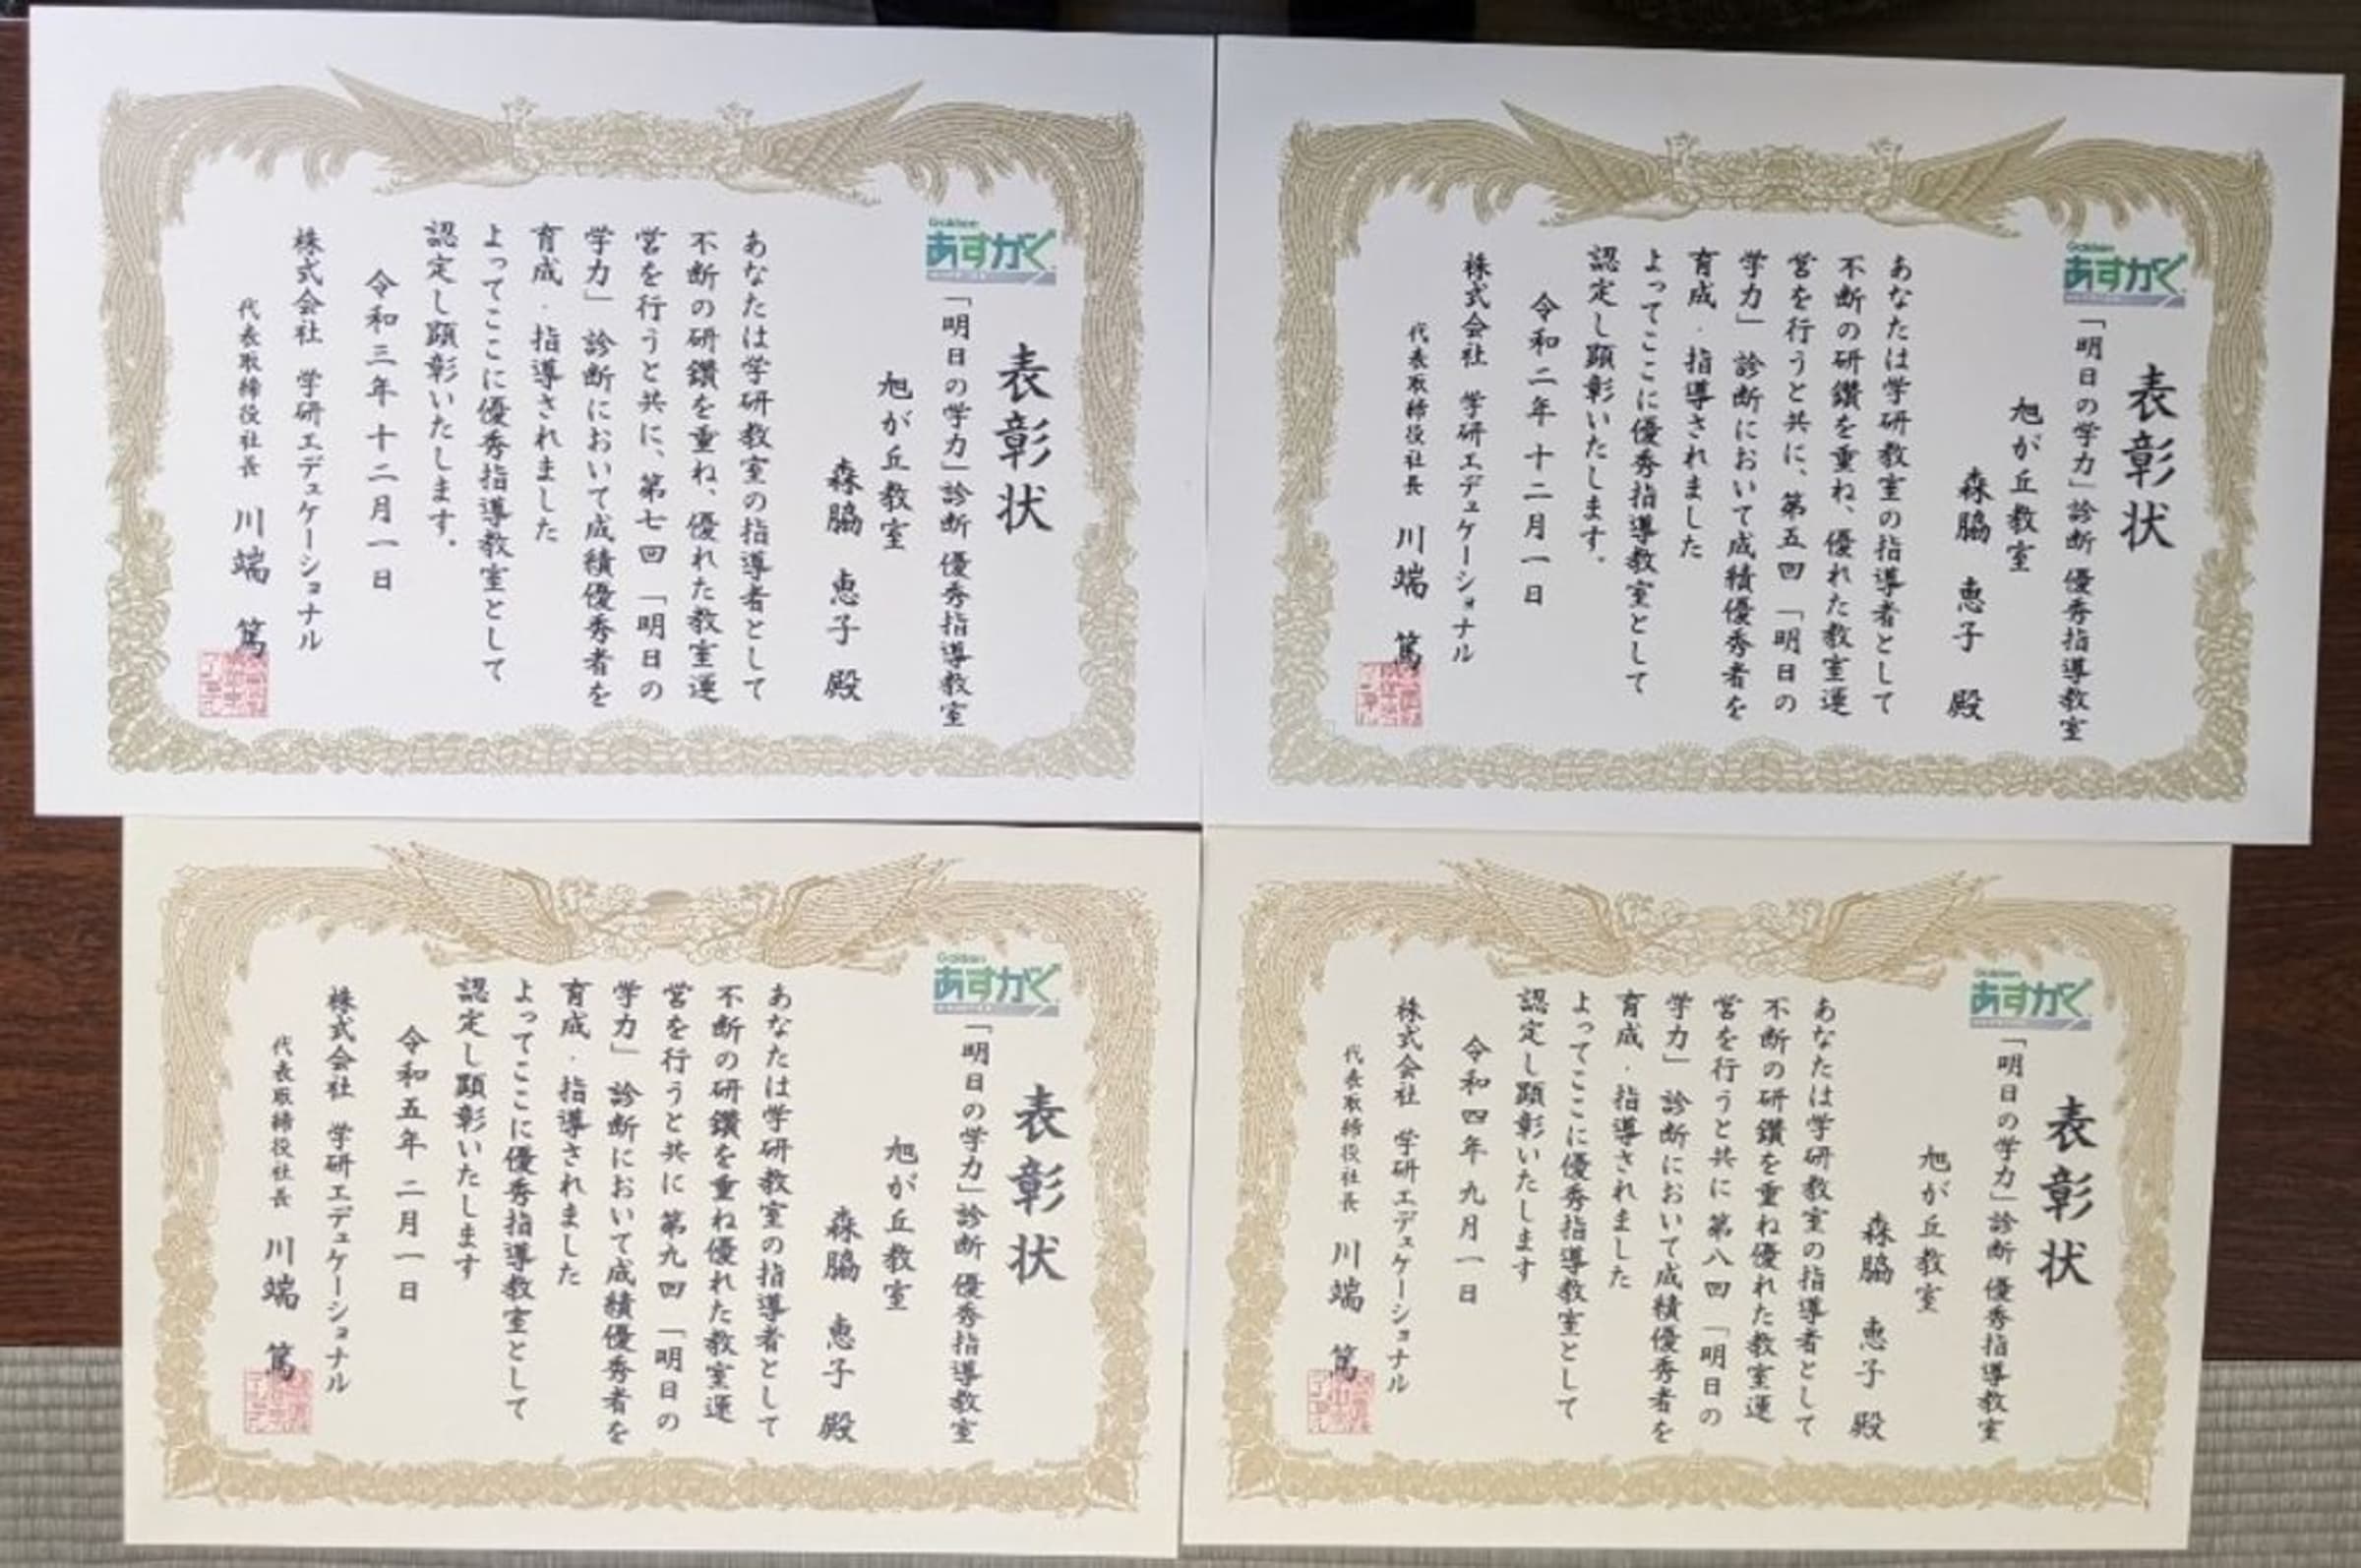 Gakken
あすがく
表彰状
「明日の学力」診断 優秀指導教室
旭が丘教室
森脇 恵子 殿
あなたは学研教室の指導者として
不断の研鑽を重ね、優れた教室運
営を行うと共に、第五回「明日の
学力」診断において成績優秀者を
育成・指導されました
よってここに優秀指導教室として
認定し顕彰いたします。
令和二年十二月一日
株式会社 学研エデュケーショナル
代表取締役社長 川端 篤
Gakken
あすがく
表彰状
「明日の学力」診断 優秀指導教室
旭が丘教室
森脇 恵子 殿
あなたは学研教室の指導者として
不断の研鑽を重ね、優れた教室運
営を行うと共に、第七回「明日の
学力」診断において成績優秀者を
育成・指導されました
よってここに優秀指導教室として
認定し顕彰いたします。
令和三年十二月一日
株式会社 学研エデュケーショナル
代表取締役社長 川端 篤
Gakken
あすがく
表彰状
「明日の学力」診断 優秀指導教室
旭が丘教室
森脇 恵子 殿
あなたは学研教室の指導者として
不断の研鑽を重ね優れた教室運
営を行うと共に第八回「明日の
学力」診断において成績優秀者を
育成・指導されました
よってここに優秀指導教室として
認定し顕彰いたします
令和四年九月一日
株式会社 学研エデュケーショナル
代表取締役社長 川端 篤
Gakken
あすがく
表彰状
「明日の学力」診断 優秀指導教室
旭が丘教室
森脇 恵子 殿
あなたは学研教室の指導者として
不断の研鑽を重ね優れた教室運
営を行うと共に第九回「明日の
学力」診断において成績優秀者を
育成・指導されました
よってここに優秀指導教室として
認定し顕彰いたします
令和五年二月一日
株式会社 学研エデュケーショナル
代表取締役社長 川端 篤